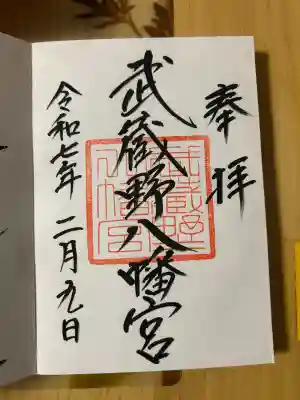 奉拝
武蔵野八幡宮
武蔵野
八幡宮
令和七年二月九日